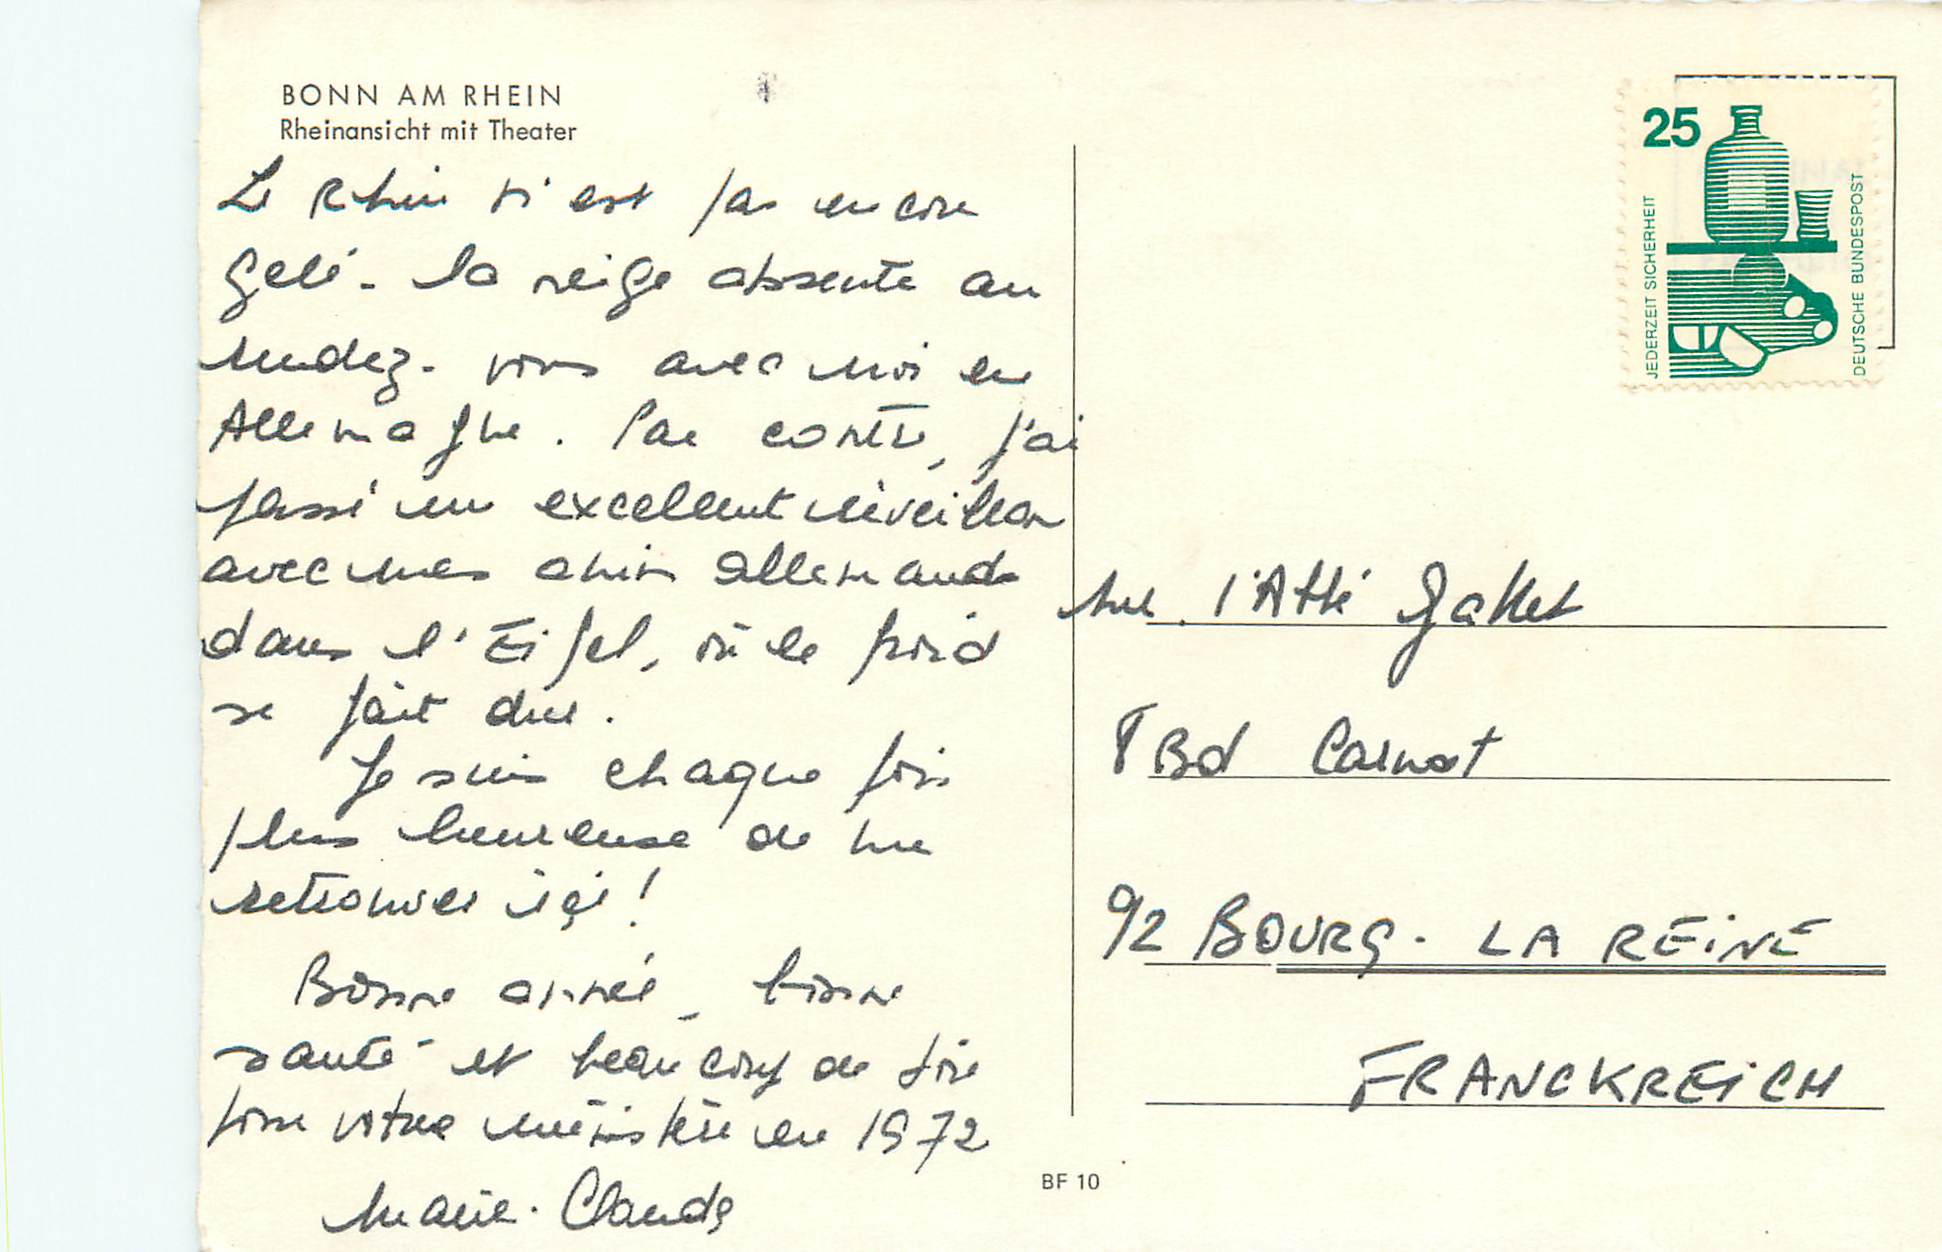 BONN AM RHEIN
Rheinansicht mit Theater
Le Rhin n'est pas encore
gelé - la neige absente au
rendez-vous avec moi en
Allemagne. Par contre, j'ai
passé un excellent réveillon
avec mes amis allemands
dans l'Eifel, où le froid
se fait dur.
Je suis chaque fois
plus heureuse de me
retrouver içi !
Bonne année, bonne
santé et beaucoup de joie
pour votre ministère en 1972
Marie-Claude
25
JEDERZEIT SICHERHEIT
DEUTSCHE BUNDESPOST
l'Abbé Gallet
Bd Carnot
92 BOURG-LA REINE
FRANCKREICH
BF 10